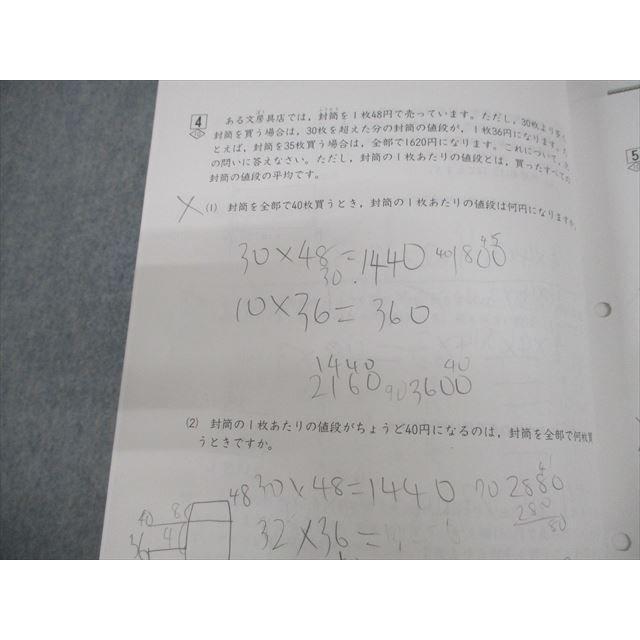 4 ある文房具店では，封筒を1枚48円で売っています。ただし，30枚より多く
封筒を買う場合は，30枚を超えた分の封筒の値段が，1枚36円になります。た
とえば，封筒を35枚買う場合は，全部で1620円になります。これについて，次
の問いに答えなさい。ただし，封筒の1枚あたりの値段とは，買ったすべての
封筒の値段の平均です。
(1) 封筒を全部で40枚買うとき，封筒の1枚あたりの値段は何円になりますか。
30×48=1440
30
45
40)1800
10×36=360
1440
2160
40
90 3600
(2) 封筒の1枚あたりの値段がちょうど40円になるのは，封筒を全部で何枚買
うときですか。
48
30×48=1440
41
70 2880
280
80
32×36=
40 80
36
5